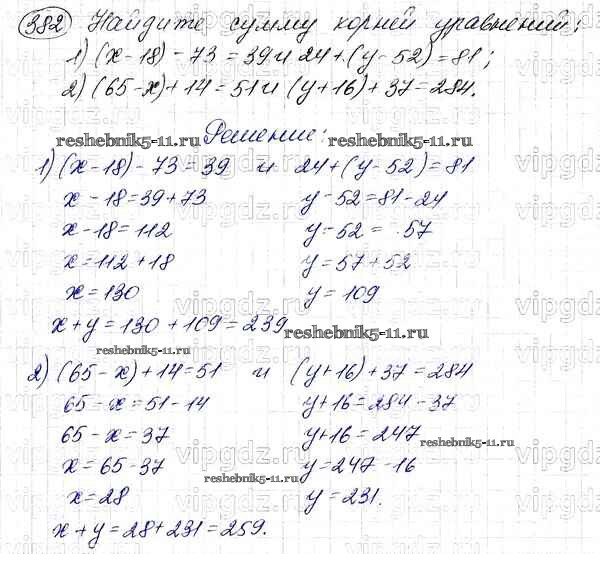 382 Найдите сумму корней уравнений:
1) (x-18)-73=39 и 24+(y-52)=81;
2) (65-x)+14=51 и (y+16)+37=284.
Решение:
reshebnik5-11.ru reshebnik5-11.ru
1) (x-18)-73=39 и 24+(y-52)=81
x-18=39+73 y-52=81-24
x-18=112 y-52=57
x=112+18 y=57+52
x=130 y=109
x+y=130+109=239
reshebnik5-11.ru
reshebnik5-11.ru
2) (65-x)+14=51 и (y+16)+37=284
65-x=51-14 y+16=284-37
65-x=37 y+16=247
reshebnik5-11.ru
x=65-37 y=247-16
reshebnik5-11.ru
x=28 y=231.
x+y=28+231=259.
vipgdz.ru